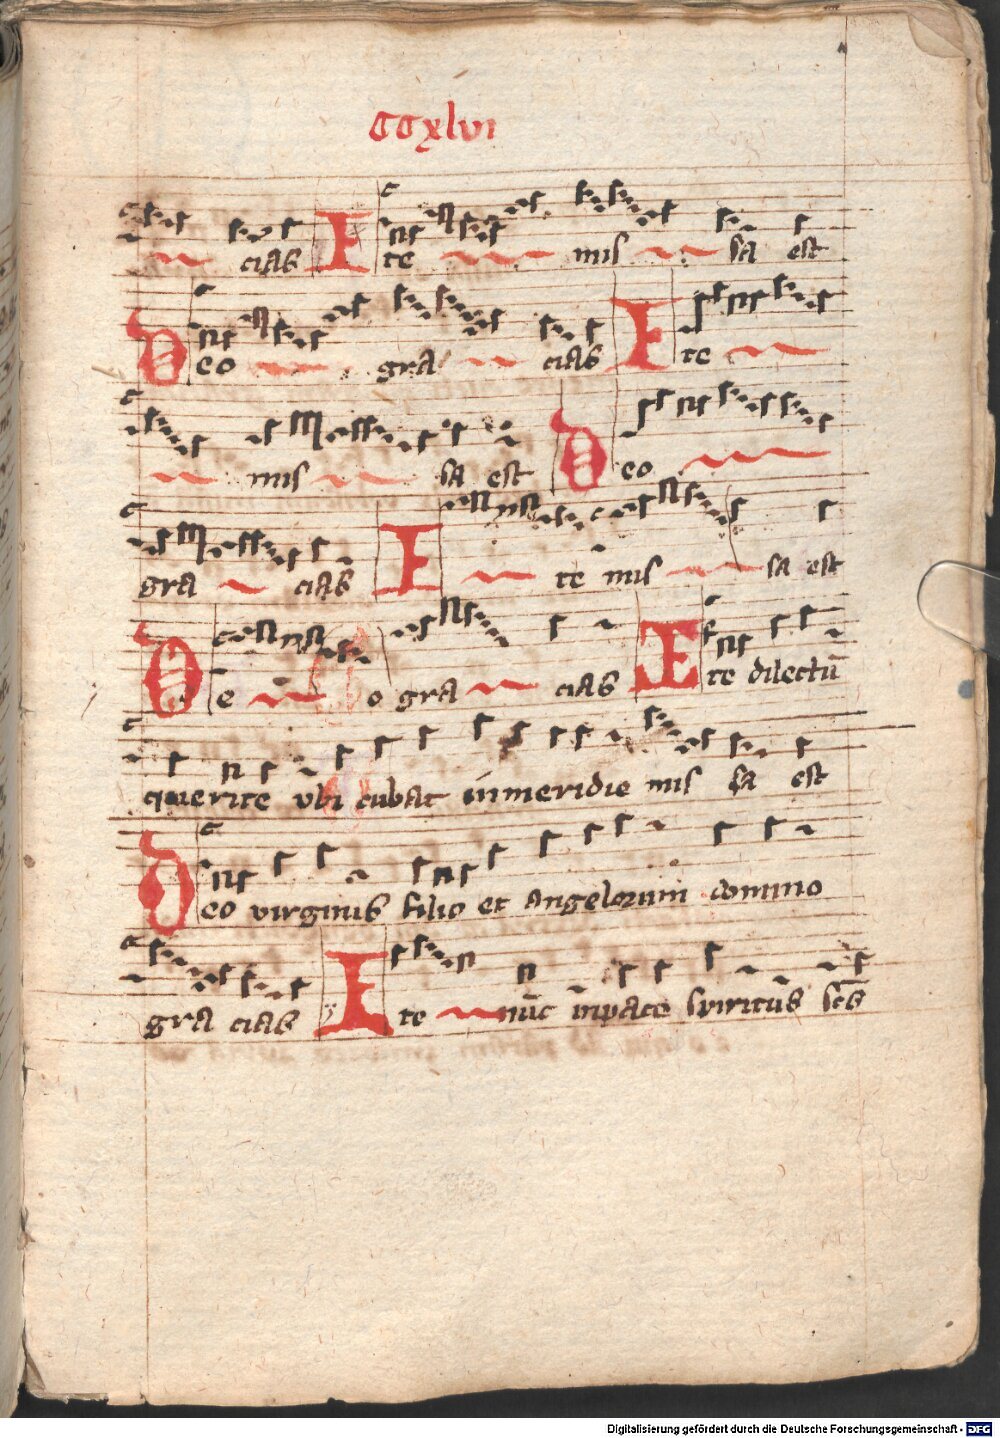 CCxlvi
cias Ite mis sa est
Deo gra cias Ite
mis sa est Deo
gra cias I te mis sa est
De o gra cias Ite dilectū
querite vbi cubat in meridie mis sa est
Deo virginis filio et angelorum domino
gra cias Ite nūc in pace spiritus scūs
Digitalisierung gefördert durch die Deutsche Forschungsgemeinschaft - DFG